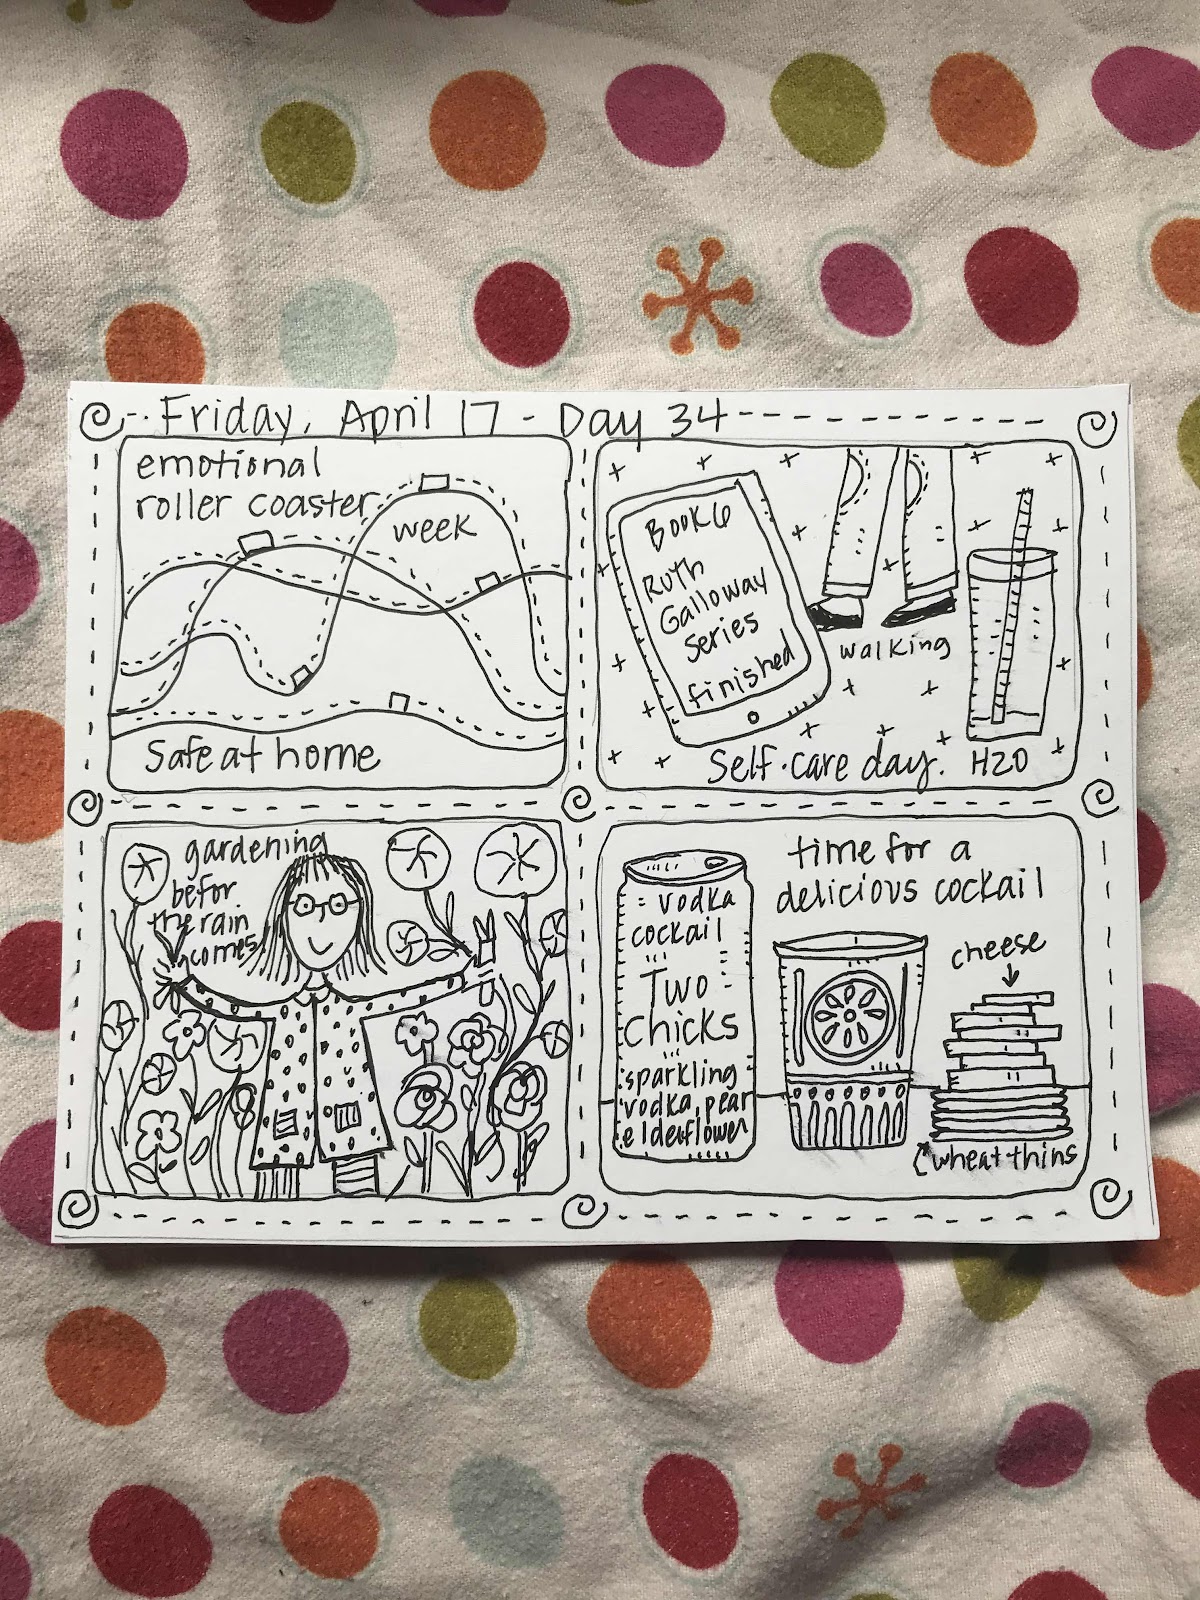 Friday, April 17 - Day 34
emotional
roller coaster
week
Safe at home
Book 6
Ruth
Galloway
Series
finished
walking
Self-care day.
H2O
gardening
befor
the rain
comes
time for a
delicious cockail
vodka
cockail
Two
Chicks
sparkling
vodka, pear
elderflower
cheese
wheat thins